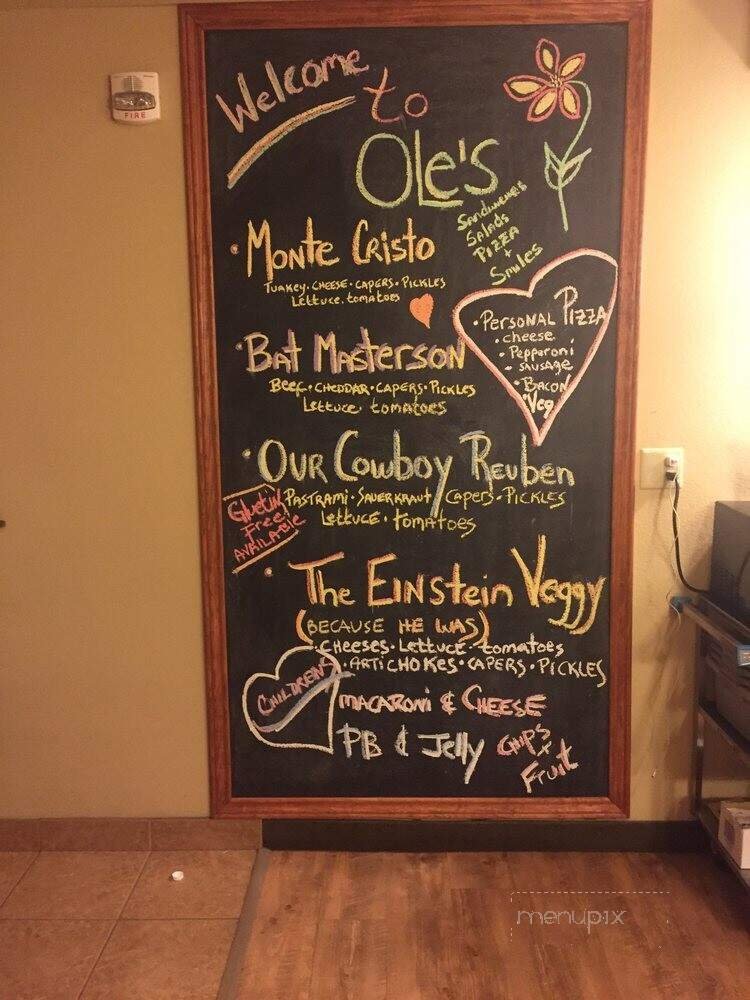 FIRE
Welcome to
OLe's
Sandwiches
Salads
Pizza
+
Smiles
• Monte Cristo
Turkey • cheese • capers • Pickles
Lettuce • tomatoes
• Personal Pizza
• cheese
• Pepperoni
• sausage
• Bacon
• Veg
• Bat Masterson
Beef • cheddar • capers • Pickles
Lettuce • tomatoes
• Our Cowboy Reuben
Pastrami • Sauerkraut • Capers • Pickles
Lettuce • tomatoes
Gluetin
Free!
AVAILABLE
• The Einstein Veggy
(BECAUSE HE WAS)
• cheeses • Lettuce • tomatoes
• Artichokes • capers • Pickles
CHILDRENS
macaroni & Cheese
PB & Jelly
Chips
+
Fruit
menupix